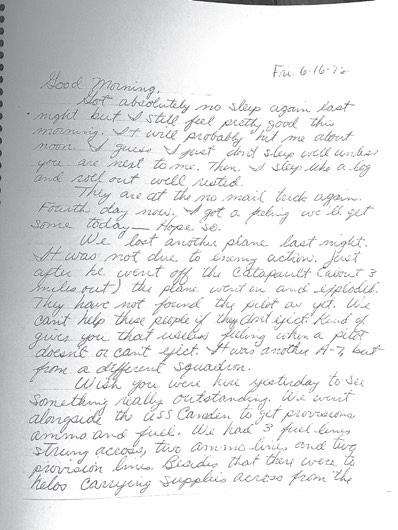 Fri. 6-16-72
Good Morning,
Got absolutely no sleep again last
night but I still feel pretty good this
morning. It will probably hit me about
noon. I guess I just don't sleep well unless
you are next to me. Then I sleep like a log
and roll out well rested.
They are at the no mail trick again.
Fourth day now. I got a feeling we'll get
some today — Hope so.
We lost another plane last night.
It was not due to enemy action. Just
after he went off the Catapault (about 3
miles out) the plane went in and exploded.
They have not found the pilot as yet. We
cant help these people if they dont eject. Kind of
gives you that useless feeling when a pilot
doesnt or cant eject. It was another A-7, but
from a different squadron.
Wish you were here yesterday to see
something really outstanding. We went
alongside the USS Camden to get provisions
ammo and fuel. We had 3 fuel lines
strung across, two ammo lines and two
provision lines. Besides that there were
helos carrying supplies across from the